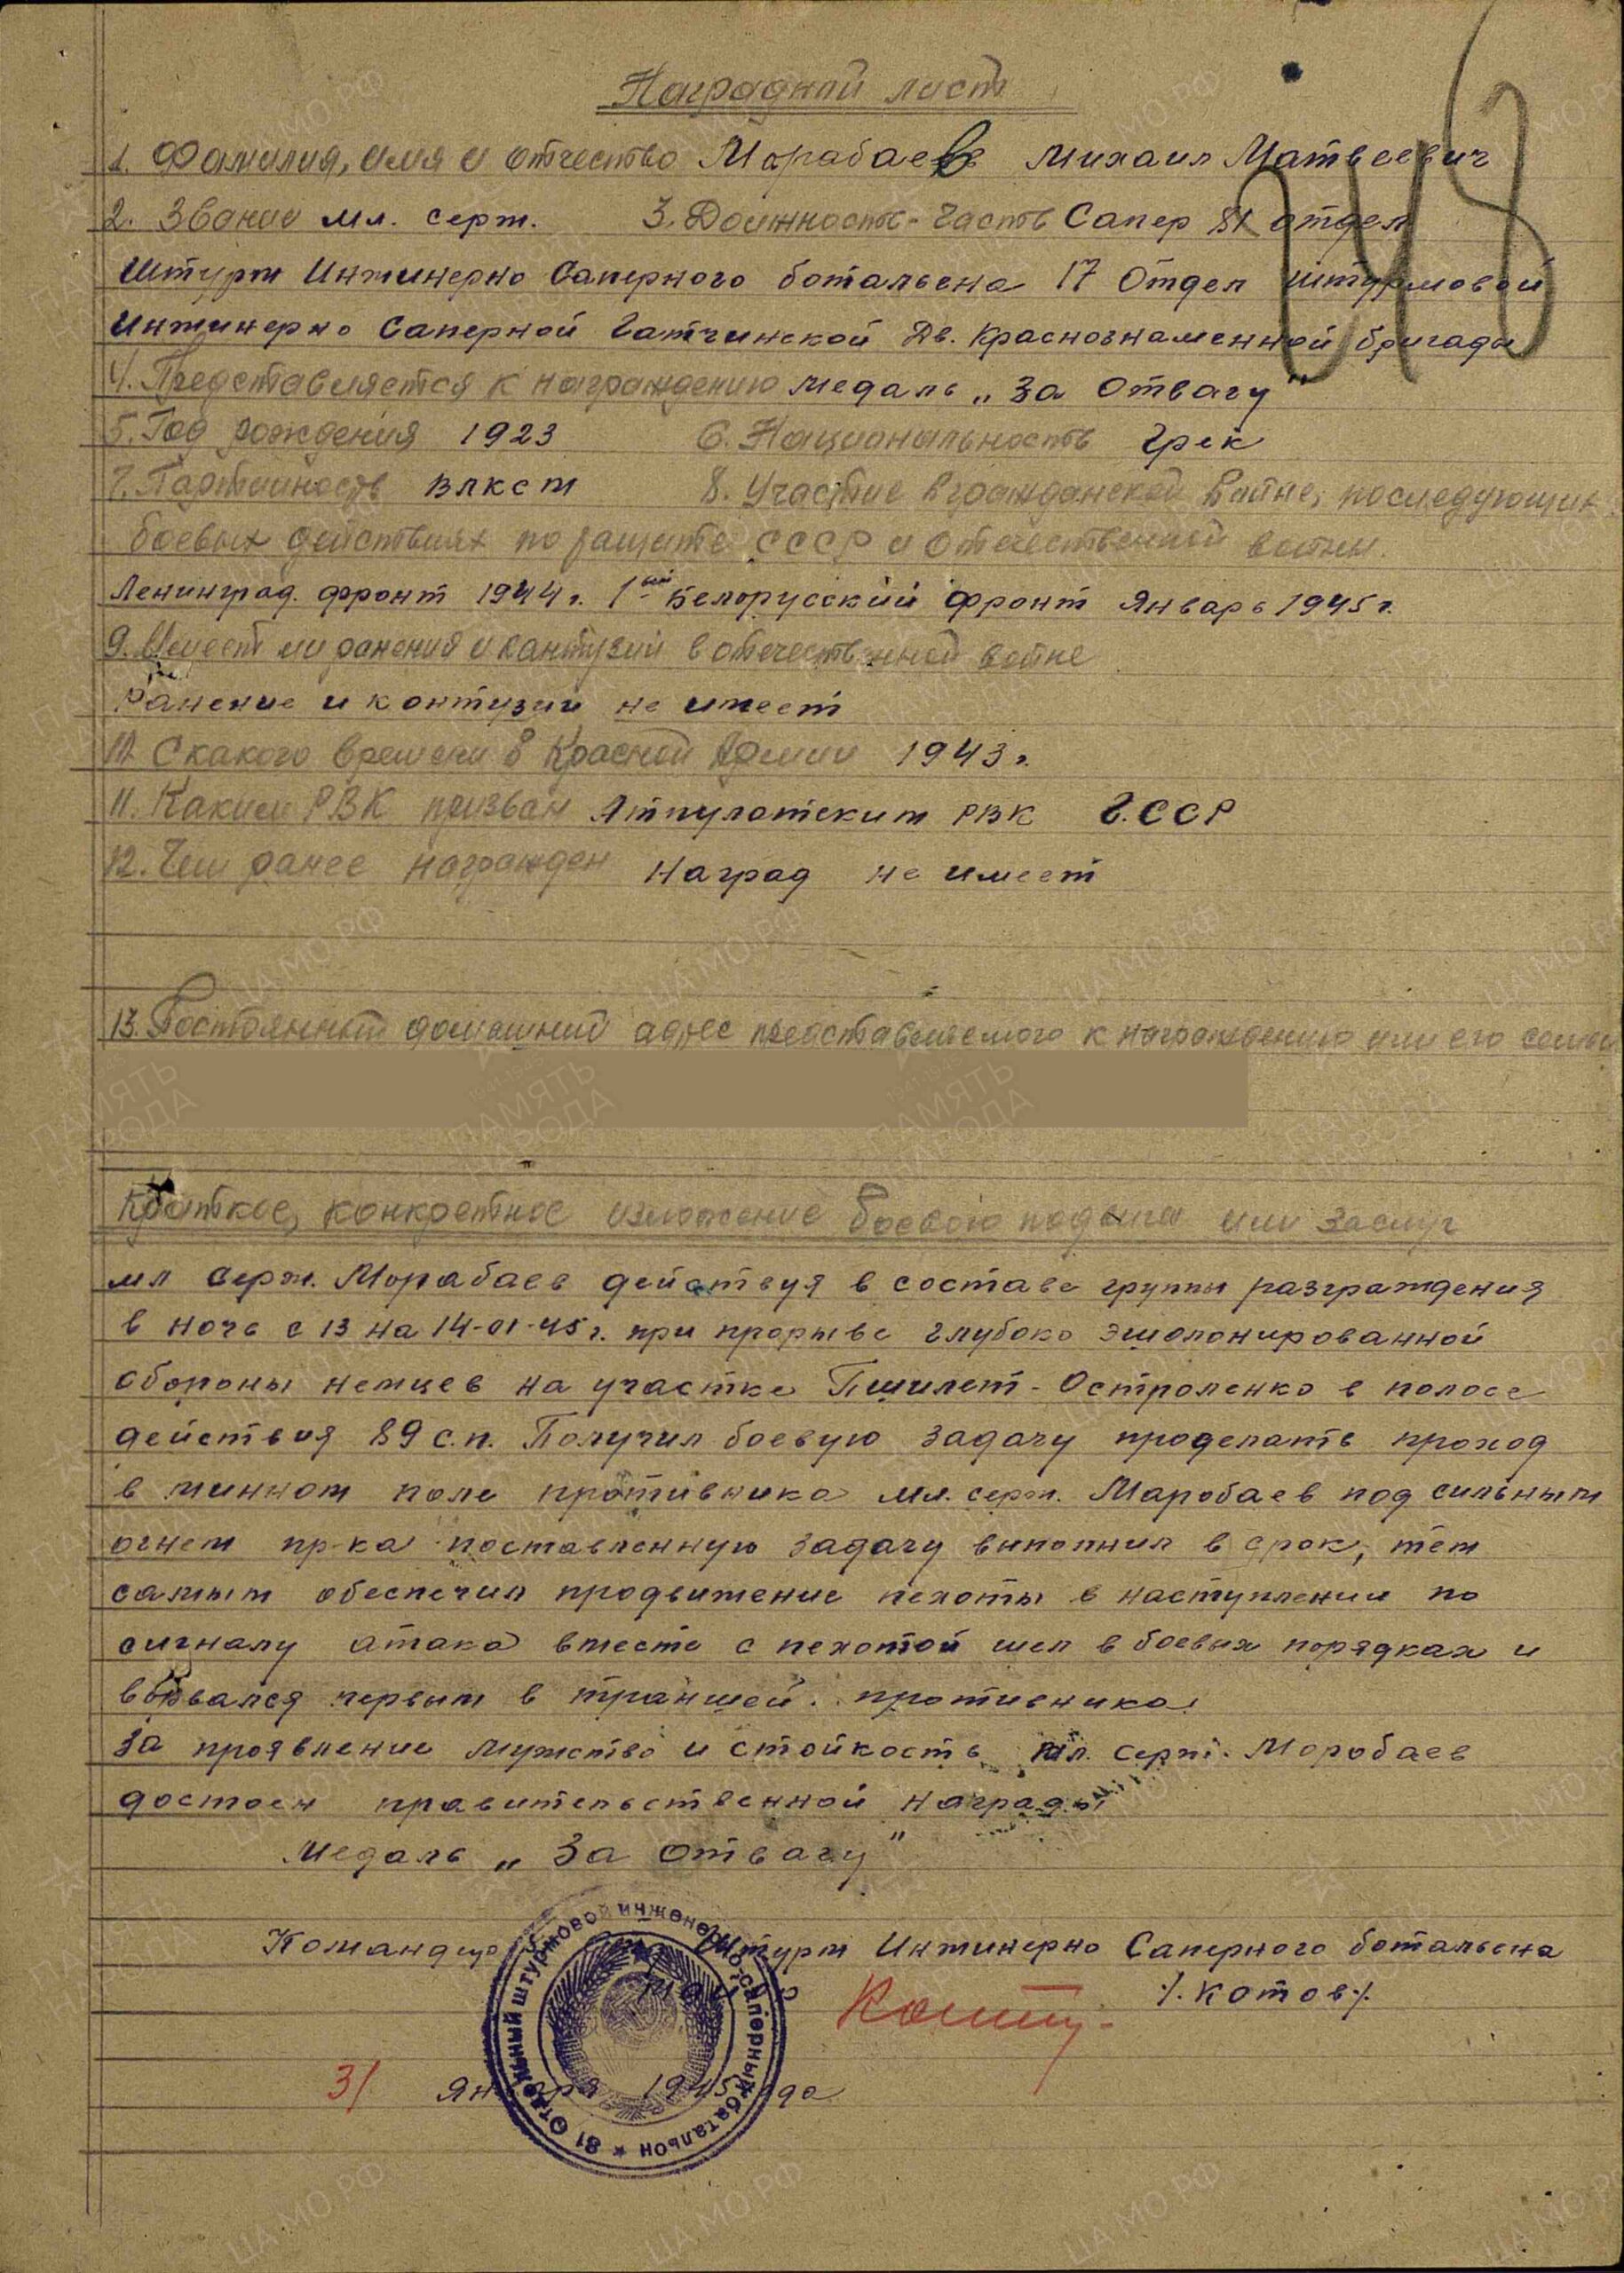 Наградной лист
1. Фамилия, имя и отчество Морабаев Михаил Матвеевич
2. Звание мл. серж. 3. Должность-часть Сапер 81 отдел
Штурм Инжинерно Саперного ботальена 17 Отдел штурмовой
Инжинерно Саперной Гатчинской Дв. Краснознаменной бригады
4. Представляется к награждению медаль „За Отвагу"
5. Год рождения 1923 6. Национальность Грек
7. Партийность ВЛКСМ 8. Участие в гражданской войне, последующих
боевых действиях по защите СССР и отечественной войны.
Ленинград. фронт 1944 г. 1вый Белорусский фронт Январь 1945 г.
9. Имеет ли ранения и кантузии в отечественной войне
Ранение и контузии не имеет
10. С какого времени в Красной Армии 1943 г.
11. Каким РВК призван РВК Г.ССР
12. Чем ранее награжден Наград не имеет
13. Постоянный домашний адрес представляемого к награждению или его семьи
Краткое, конкретное изложение боевого подвига или заслуг
мл серж. Морабаев действуя в составе группы разграждения
в ночь с 13 на 14-01-45 г. при прорыве глубоко эшолонированной
обороны немцев на участке Пшилет-Остроленко в полосе
действия 89 с.п. Получил боевую задачу проделать проход
в минном поле противника мл. серж. Маробаев под сильным
огнем пр-ка поставленную задачу выполнил в срок, тем
самым обеспечил продвижение пехоты в наступлении по
сигналу атака вместе с пехотой шел в боевых порядках и
ворвался первым в траншей. противника.
За проявление мужство и стойкость мл. серж. Моробаев
достоен правительственной награды
Медаль „За отвагу"
Командир Штурм Инжинерно Саперного ботальена
/. Котов./
31 января 1945 года
81 Отдельный штурмовой инженерно-саперный батальон
ПАМЯТЬ НАРОДА
ЦА МО РФ